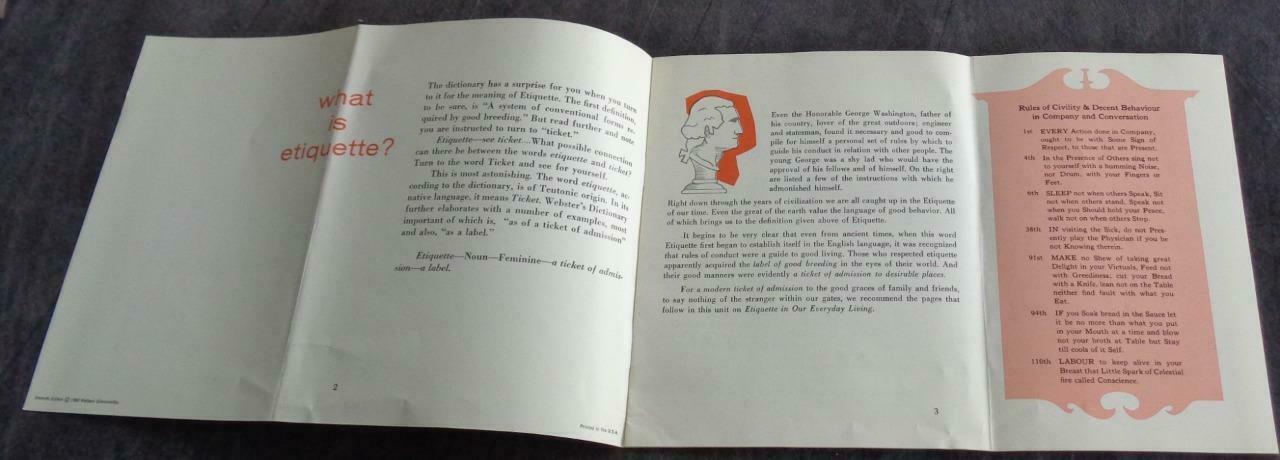 what
is
etiquette?
The dictionary has a surprise for you when you turn
to it for the meaning of Etiquette. The first definition,
to be sure, is "A system of conventional forms re-
quired by good breeding." But read further and note
you are instructed to turn to "ticket."
Etiquette—see ticket... What possible connection
can there be between the words etiquette and ticket?
Turn to the word Ticket and see for yourself.
This is most astonishing. The word etiquette, ac-
cording to the dictionary, is of Teutonic origin. In its
native language, it means Ticket. Webster's Dictionary
further elaborates with a number of examples, most
important of which is, "as of a ticket of admission"
and also, "as a label."
Etiquette—Noun—Feminine—a ticket of admis-
sion—a label.
2
Printed in the U.S.A.
Even the Honorable George Washington, father of
his country, lover of the great outdoors; engineer
and statesman, found it necessary and good to com-
pile for himself a personal set of rules by which to
guide his conduct in relation with other people. The
young George was a shy lad who would have the
approval of his fellows and of himself. On the right
are listed a few of the instructions with which he
admonished himself.
Right down through the years of civilization we are all caught up in the Etiquette
of our time. Even the great of the earth value the language of good behavior. All
of which brings us to the definition given above of Etiquette.
It begins to be very clear that even from ancient times, when this word
Etiquette first began to establish itself in the English language, it was recognized
that rules of conduct were a guide to good living. Those who respected etiquette
apparently acquired the label of good breeding in the eyes of their world. And
their good manners were evidently a ticket of admission to desirable places.
For a modern ticket of admission to the good graces of family and friends,
to say nothing of the stranger within our gates, we recommend the pages that
follow in this unit on Etiquette in Our Everyday Living.
3
Rules of Civility & Decent Behaviour
in Company and Conversation
1st EVERY Action done in Company,
ought to be with Some Sign of
Respect, to those that are Present.
4th In the Presence of Others sing not
to yourself with a humming Noise,
nor Drum, with your Fingers or
Feet.
6th SLEEP not when others Speak, Sit
not when others stand, Speak not
when you Should hold your Peace,
walk not on when others Stop.
38th IN visiting the Sick, do not Pres-
ently play the Physician if you be
not Knowing therein.
91st MAKE no Shew of taking great
Delight in your Victuals, Feed not
with Greediness; cut your Bread
with a Knife, lean not on the Table
neither find fault with what you
Eat.
94th IF you Soak bread in the Sauce let
it be no more than what you put
in your Mouth at a time and blow
not your broth at Table but Stay
till cools of it Self.
110th LABOUR to keep alive in your
Breast that Little Spark of Celestial
fire called Conscience.